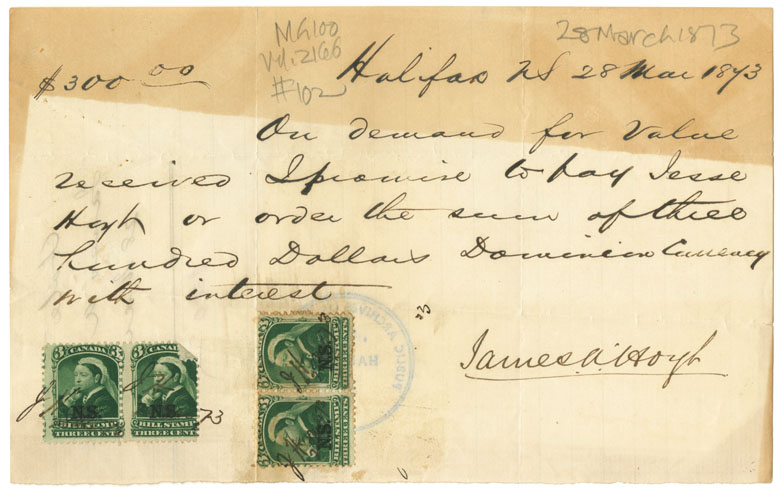 MG100
Vol. 2166
#102
28 March 1873
$300 00
Halifax NS 28 Mar 1873
On demand for Value
received I promise to pay Jesse
Hoyt or order the sum of three
hundred Dollars Dominion Currency
with interest
James A. Hoyt
73
CANADA
N.S.
BILL STAMP
THREE CENTS
3 CANADA
N.S.
BILL STAMP
THREE CENTS
73
N.S.
BILL STAMP
THREE CENTS
N.S.
BILL STAMP
THREE CENTS
PUBLIC ARCHIVES
HA